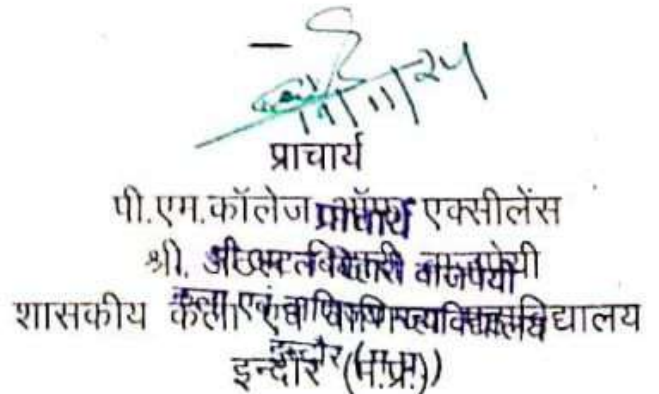 प्राचार्य
पी.एम.कॉलेज ऑफ एक्सीलेंस
श्री अटल बिहारी वाजपेयी
शासकीय कला एवं वाणिज्य महाविद्यालय
इन्दौर (म.प्र.)